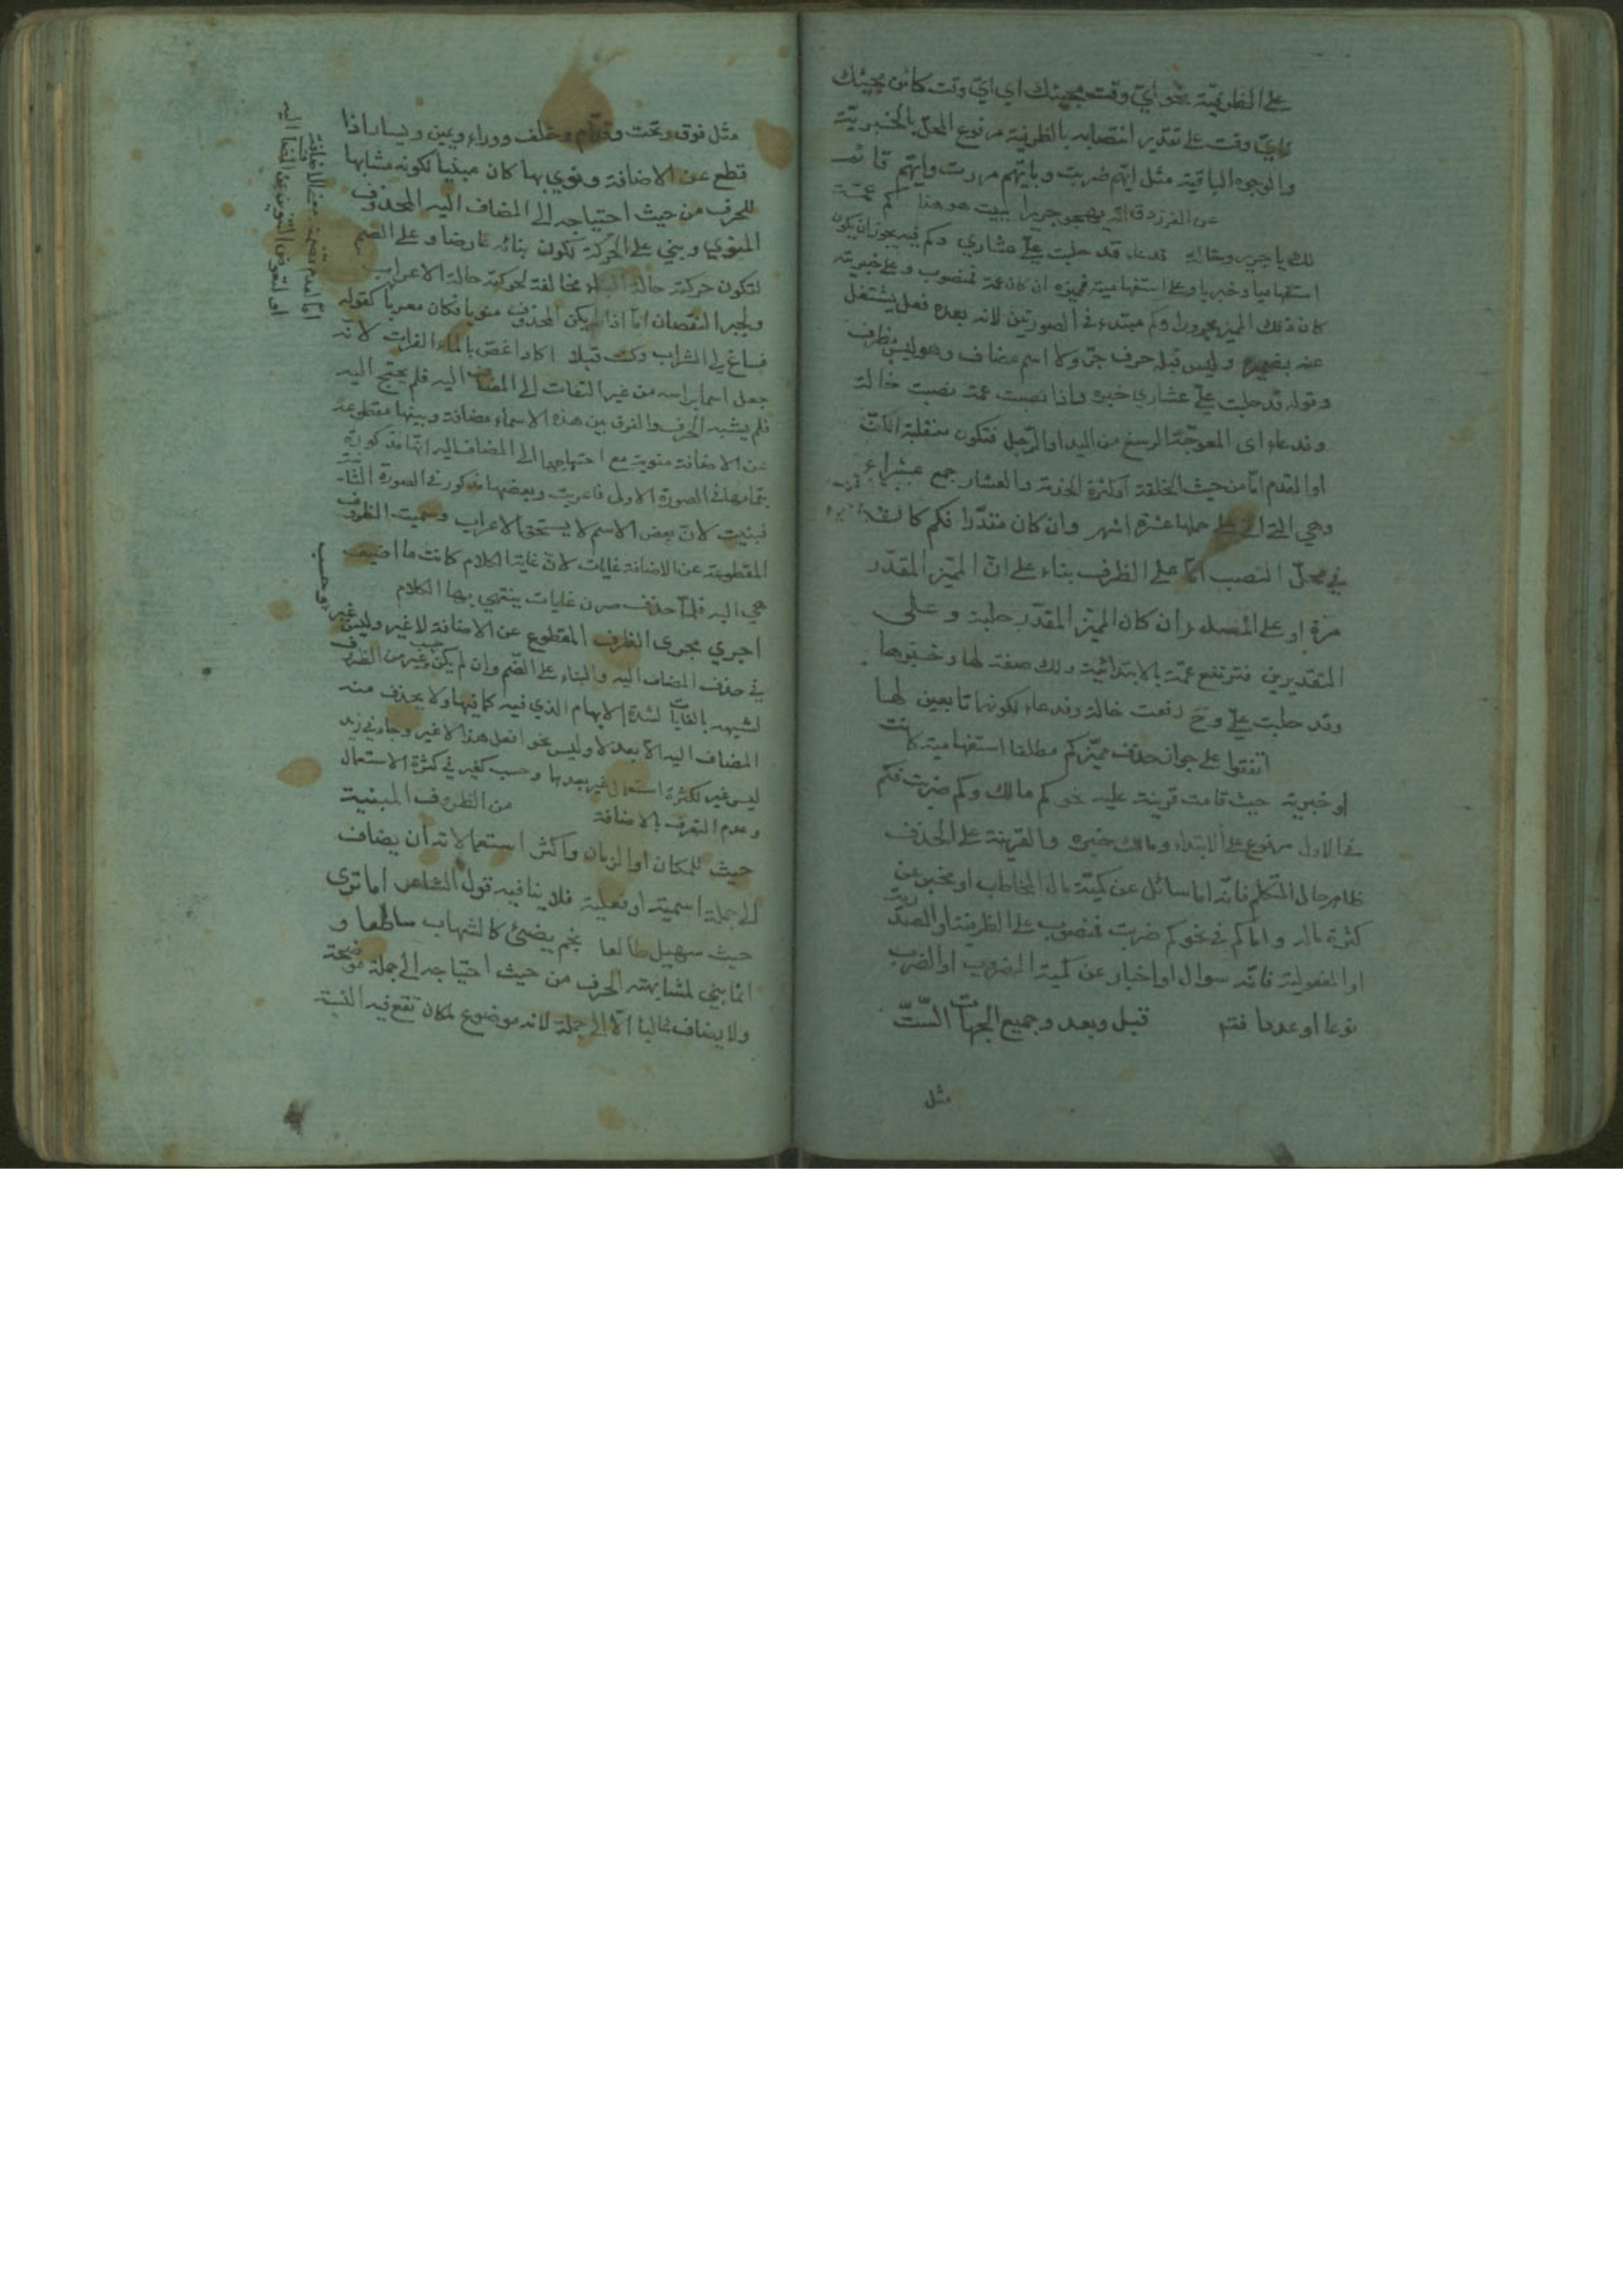 على الظرفية نحو اي وقت مجيئك اي اي وقت كائن مجيئك
فاي وقت على تقدير انتصابه بالظرفية مرفوع المحل بالخبرية
والوجوه الباقية مثل ايهم ضربت وبايهم مررت وايهم قائم
عن الفرزدق انه يهجو جريرا ببيت هو هذا كم عمة
لك يا جرير وخالة فدعاء قد حلبت علي عشاري وكم فيه يجوز ان يكون
استفهاميا وخبريا وعلى استفهاميته فمميزه ان كان عمة فمنصوب وعلى خبريته
كان ذلك المميز مجرورا وكم مبتدء في الصورتين لانه بعده فعل يشتغل
عنه بضميره وليس قبله حرف جر ولا اسم مضاف وهو ليس بظرف
وقوله قد حلبت علي عشاري خبره واذا نصبت عمة نصبت خالة
وفدعاء اى المعوجة الرسغ من اليد او الرجل فتكون منقلبة الكف
او القدم اما من حيث الخلقة او لكثرة الخدمة والعشار جمع عشراء
وهي التي اتى على حملها عشرة اشهر وان كان مقدرا فكم كان
في محل النصب اما على الظرف بناء على ان المميز المقدر
مرة او على المصدر ان كان المميز المقدر حلبة وعلى
التقديرين فترتفع عمة بالابتدائية ولك صفة لها وخبرها
وقد حلبت علي وح رفعت خالة وفدعاء لكونهما تابعين لها
اتفقوا على جواز حذف مميز كم مطلقا استفهامية كانت
او خبرية حيث قامت قرينة عليه نحو كم مالك وكم ضربت فكم
في الاول مرفوع على الابتداء ومالك خبره والقرينة على الحذف
ظاهر حال المتكلم فانه اما سائل عن كمية مال المخاطب او مخبر عن
كثرة ماله واما كم في نحو كم ضربت فمنصوب على الظرفية او المصدرية
او المفعولية فانه سوال او اخبار عن كمية المضروب او الضرب
نوعا او عددا فتم قبل وبعد وجميع الجهات الست
مثل
مثل فوق وتحت وقدام وخلف ووراء ويمين ويسار اذا
قطع عن الاضافة ونوي بها كان مبنيا لكونه مشابها
للحرف من حيث احتياجه الى المضاف اليه المحذوف
المنوي وبني على الحركة لكون بنائه عارضا وعلى الضم
لتكون حركته حالة البناء مخالفة لحركته حالة الاعراب
ويجبر النقصان اما اذا لم يكن المحذوف منويا فكان معربا كقوله
فساغ لي الشراب وكنت قبلا اكاد اغص بالماء الفرات لانه
جعل اسما براسه من غير التفات الى المضاف اليه فلم يحتج اليه
فلم يشبه الحرف والفرق بين هذه الاسماء مضافة وبينها مقطوعة
عن الاضافة منوية مع احتياجها الى المضاف اليه انها مذكورة
بتمامها في الصورة الاولى فاعربت وبعضها مذكور في الصورة الثانية
فبنيت لان بعض الاسم لا يستحق الاعراب وسميت الظروف
المقطوعة عن الاضافة غايات لان غاية الكلام كانت ما اضيف
هي اليه فلما حذف صرن غايات ينتهي بها الكلام
اجري مجرى الظرف المقطوع عن الاضافة لا غير وليس غير وحسب
في حذف المضاف اليه والبناء على الضم وان لم يكن غير من الظروف
لشبهه بالغايات لشدة الابهام الذي فيه كما فيها ولا يحذف منه
المضاف اليه الا بعد لا وليس نحو افعل هذا لا غير وجاءني زيد
ليس غير لكثرة استعمال غير بعدها وحسب كغير في كثرة الاستعمال
وعدم التعرف بالاضافة من الظروف المبنية
حيث للمكان او الزمان واكثر استعمالاته ان يضاف
الى جملة اسمية او فعلية فلا ينافيه قول الشاعر اما ترى
حيث سهيل طالعا نجم يضئ كالشهاب ساطعا و
انما بني لمشابهته الحرف من حيث احتياجه الى جملة موضحة
ولا يضاف غالبا الا الى جملة لانه موضوع لمكان تقع فيه النسبة